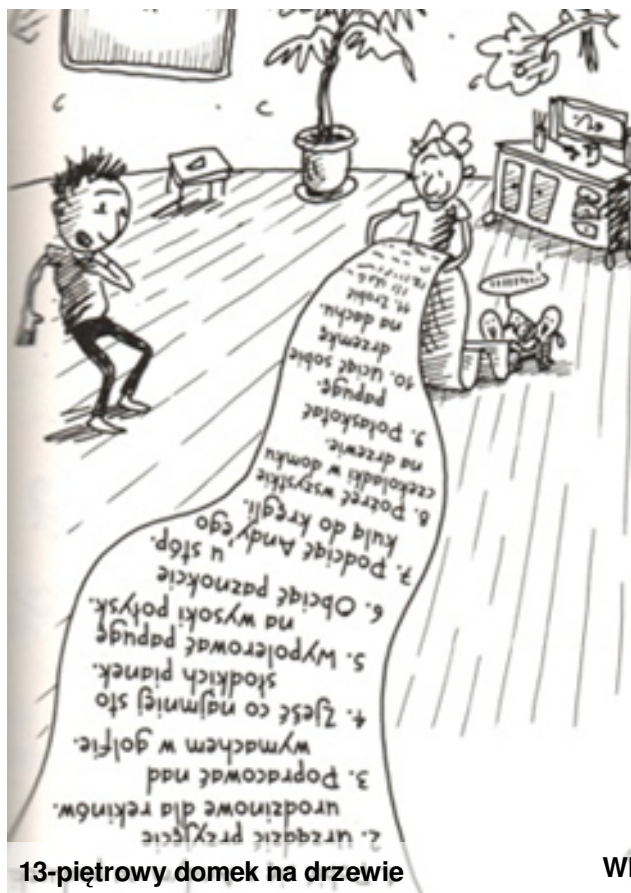 2. urządzić przyjęcie
urodzinowe dla rekinów.
3. Popracować nad
wymachem w golfie.
4. Zjeść co najmniej sto
słodkich pianek.
5. Wypolerować papugę
na wysoki połysk.
6. Obciąć paznokcie
u stóp.
7. Podciąć Andy'ego
kulą do kręgli.
8. Pożreć wszystkie
czekoladki w domku
na drzewie.
9. Połaskotać
papugę.
10. Uciąć sobie
drzemkę
na dachu.
11. Zrobić
13-piętrowy domek na drzewie